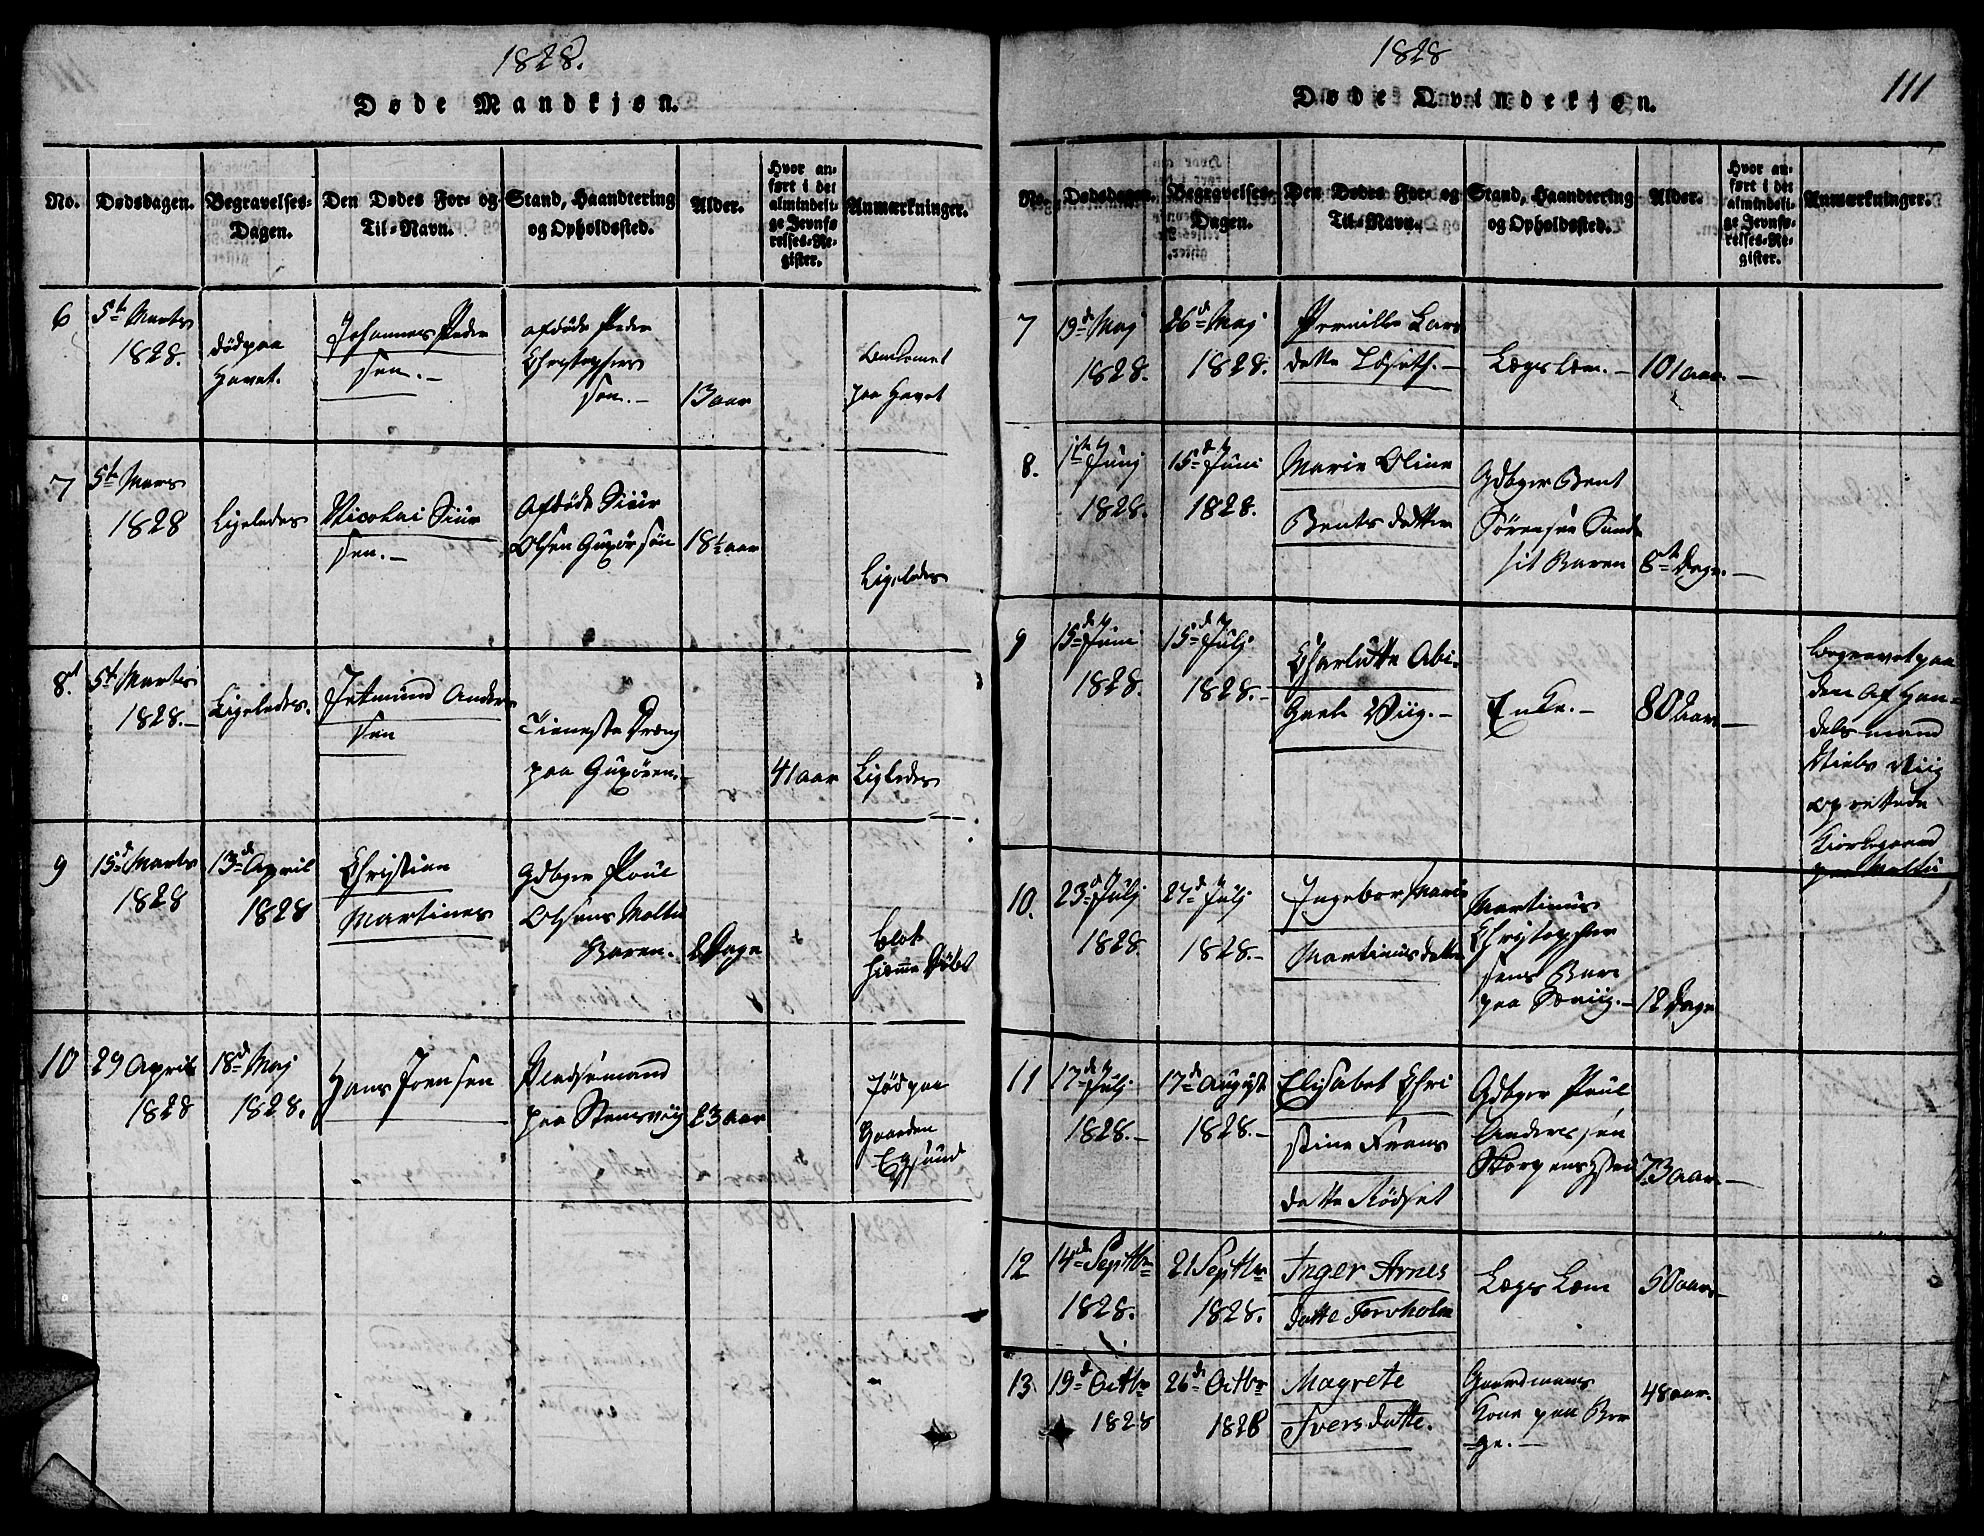 1828.
Døde Mandkjøn.
No.
Dødsdagen.
Begravelses-
Dagen.
Den Dødes For- og
Til-Navn.
Stand, Haandtering
og Opholdssted.
Alder.
Hvor an-
ført i det
almindeli-
ge Jevnfø-
relses-Re-
gister.
Anmærkninger.
6
5te Marts
1828.
død paa
Havet.
Johannes Peder
sen.-
afdøde Peder
Christophers
søn.-
13 aar
omkomet
paa Havet
7
5te Mars
1828
Ligeledes
Nicolai Siur
sen.-
Afdøde Siur
Olsen Guxørsøn
18½ aar
Ligeledes
8
5te Marts
1828.-
Ligeledes.
Jetmund Anders
sen
Tieneste Dreng
paa Guxøren.-
41 aar
Ligeledes
9
15de Marts
1828
13de April
1828
Christian
Martines
Gdbger Poul
Olsens Molte
Baren.
8 Dage
blot
hieme Døbt
10
29 April
1828
18de Maj
1828.
Hans Joensen
Pladsemand
paa Stensviig
23 aar
død paa
Gaarden
Egsund
1828
111
Døde Qvindekjøn.
No.
Dødsdagen.
Begravelses-
Dagen.
Den Dødes For- og
Til-Navn.
Stand, Haandtering
og Opholdssted.
Alder.
Hvor an-
ført i det
almindeli-
ge Jevnfø-
relses-Re-
gister.
Anmærkninger.
7
19de Maj
1828.
26de Maj
1828.
Pernille Lars
datte Løseth.-
Lægslem.-
101 aar.-
8.
1te Junj
1828.
15de Juni
1828.
Marie Oline
Bents datter
Gdbger Bent
Sørensen Sunds
sit Baren
8te Dage.-
9
15de Juni
1828.
15de Julj
1828.-
Charlotte Abi-
Gael Wiig.-
Enke.-
80 aar.-
begravet paa
den af Han-
delsmand
Niels Wiig
oprettede
Kirkegaard
paa Moltu
10.
23de Julj
1828.
27de Julj
1828.-
Ingebor Marie
Martinusdatte
Martinus
Christopher
sens Barn
paa Sæviig.-
12 Dage
11
17de Julj
1828.-
17de August
1828.-
Elisabet Chri
stine Frans
datte Rødset
Gdbger Poul
Anderssøn
73 aar.-
12
14de Septbr
1828.
21 Septbr
1828.
Inger Arnes
datte Torvholm
Lægs Lem
50 aar.-
13
19de Octbr
1828
26de Octbr
1828
Magrete
Iversdatte.
Gaardmans
Kone paa Ber
ge.-
48 aar.